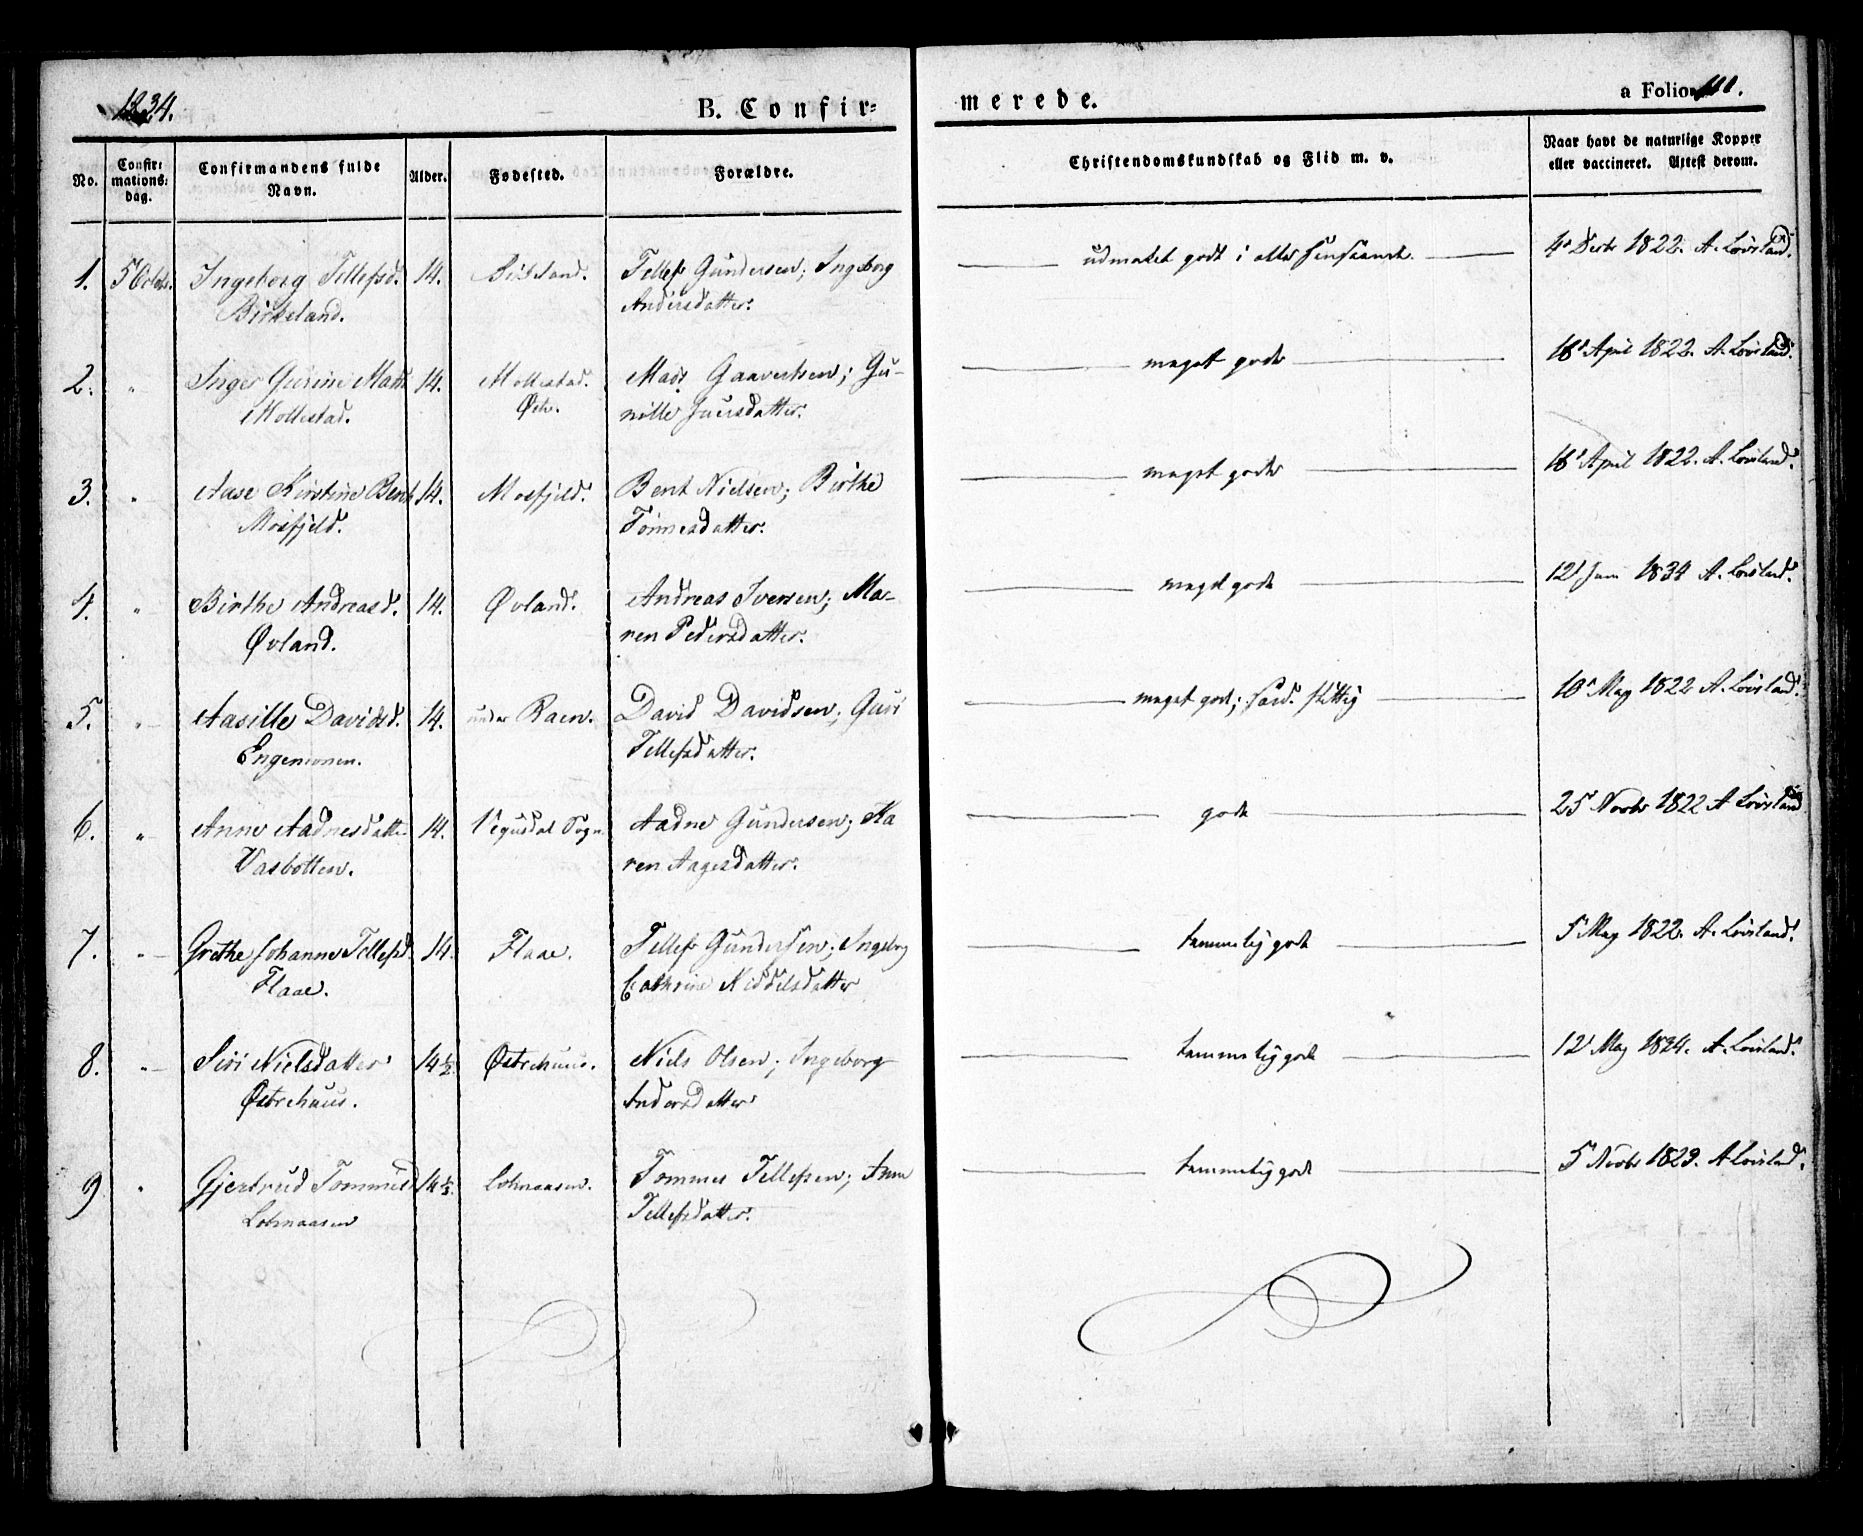 1834.
B. Confir=
merede.
a Folio
No.
Confir:
mations:
dag.
Confirmandens fulde
Navn.
Alder.
Fødested.
Forældre.
Christendomskundskab og Flid m. v.
Naar havt de naturlige Kopper
eller vaccineret. Attest derom.
1. 5 Octobr. Ingeborg Tellefsd. 14. Tellef Gundersen; Ingeborg
Birkeland. Andersdatter.
udmærket godt i alle 4' Decbr 1822. A. Løvland.
2. " Inger Gurine 14. Mollestad. Mads Gaavertsen; Gu-
Mollestad. nille
meget godt 18' April 1822. A. Løvland.
3. " Aase Kirstine Bent 14. Mosfjeld. Bent Nielsen; Birthe
Mosfjeld. Tønnesdatter.
meget godt 18' April 1822. A. Løvland.
4. " Birthe Andreasd. 14. Øvland. Andreas Iversen; Ma-
Øvland. ren Pedersdatter.
meget godt 12' Juni 1834 A. Løvland.
5. " Aasille Davidsd. 14. under Raen. David Davidsen; Guri
Engemoen. Tellefsdatter.
meget godt; flittig 10' May 1822 A. Løvland.
6. " Anne Aadnesdatter 14. Vegusdal Sogn Aadne Gundersen; Ka
Vasbotten. ren Aagesdatter.
godt 25 Novbr 1822 A Løvland
7. " Grethe Johanne Tellefsd. 14. Flaae. Tellef Gundersen; Ingeborg
Flaae. Cathrine Niddelsdatter
temmelig godt 5' May 1822. A. Løvland.
8. " Siri Nielsdatter 14½. Østrehuus. Niels Olsen; Ingeborg
Østrehuus. Andersdatter
temmelig godt 12' May 1824. A. Løvland.
9 " Gjertrud Tommesd 14½. Tommes Tellefsen; Anne
Tellefsdatter.
temmelig godt 5 Novbr 1823. A Løvland.